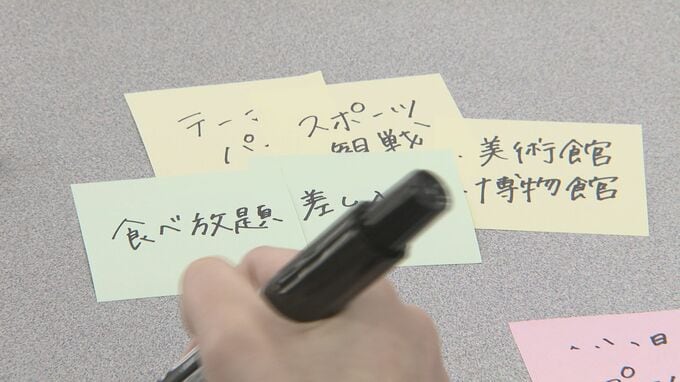 テー
パ
スポーツ
観戦
美術館
博物館
食べ放題
差し